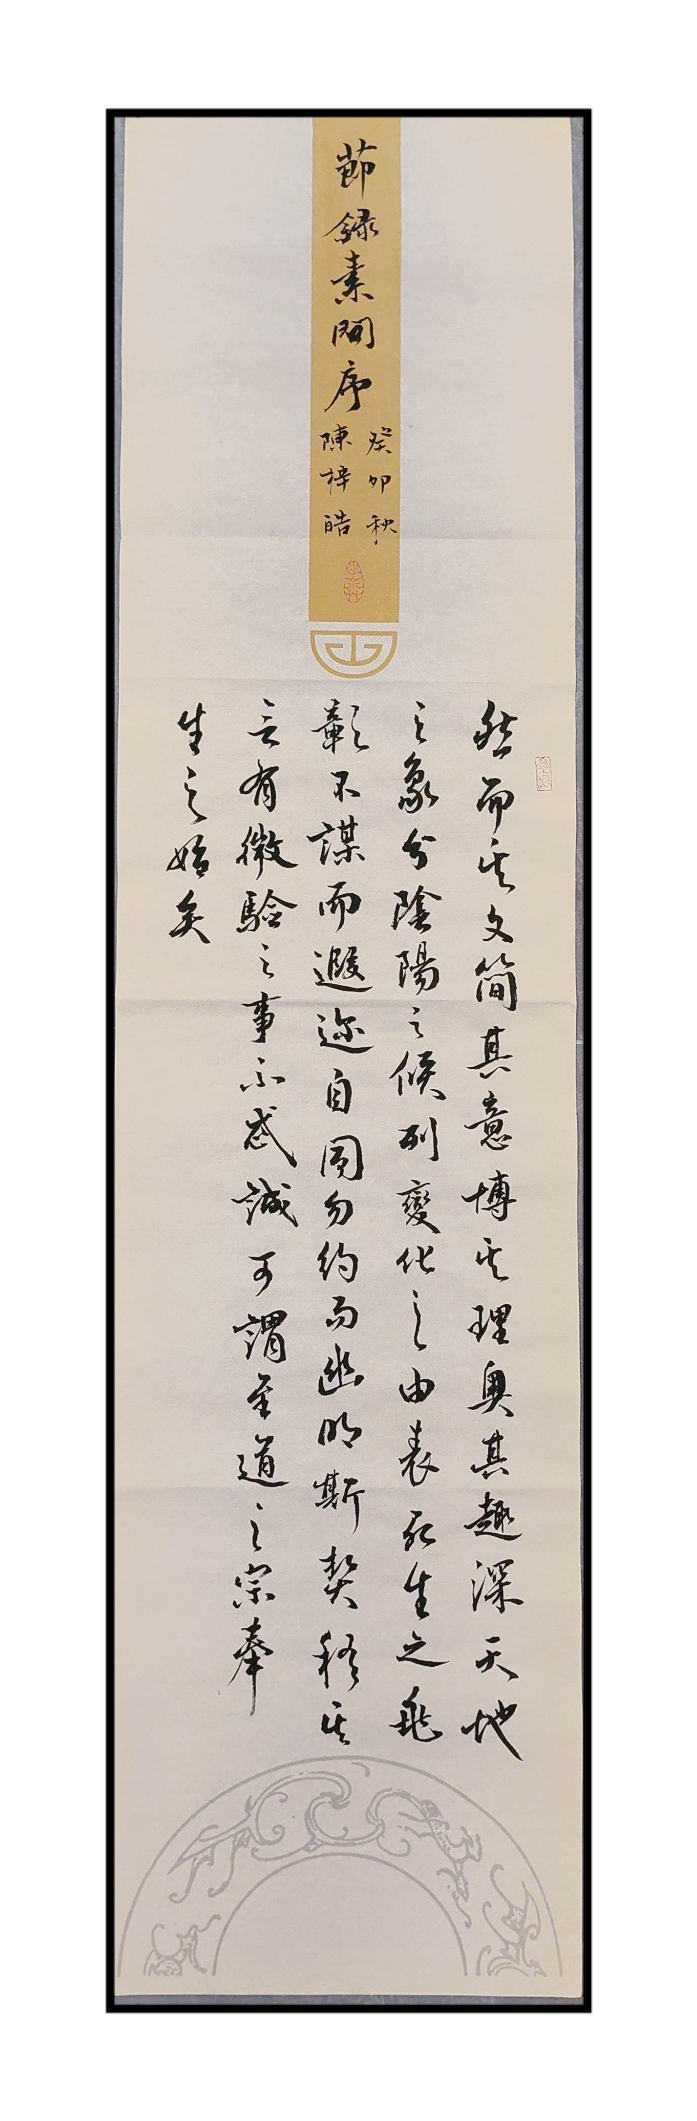 節録素問序
癸卯秋
陳梓皓
然而其文簡其意博其理奧其趣深天地
之象分陰陽之候列變化之由表死生之兆
彰不謀而遐迩自同勿約而幽明斯契稽其
言有徵驗之事不忒誠可謂至道之宗奉
生之始矣